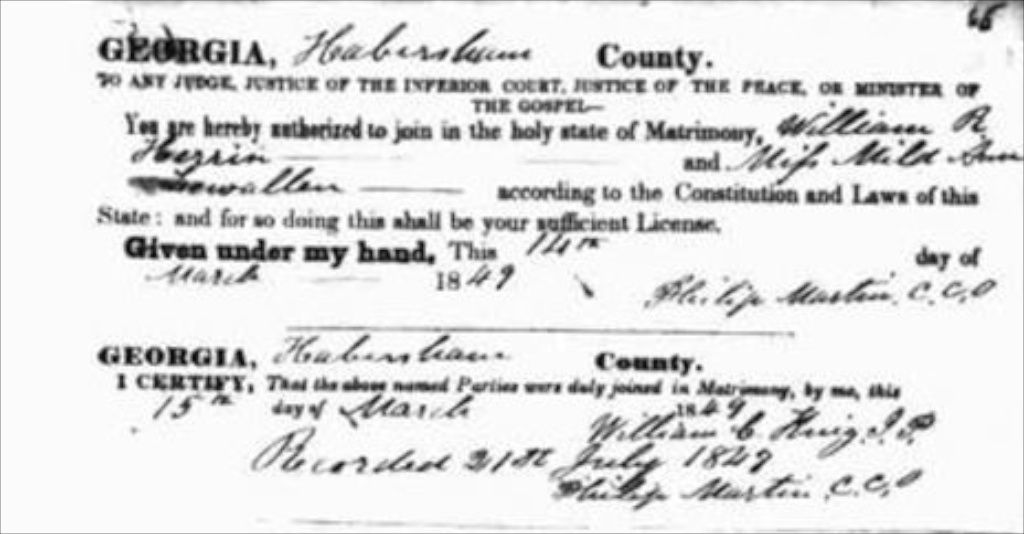 68
GEORGIA, Habersham County.
TO ANY JUDGE, JUSTICE OF THE INFERIOR COURT, JUSTICE OF THE PEACE, OR MINISTER OF
THE GOSPEL—
You are hereby authorized to join in the holy state of Matrimony, William R
Herrin and Miss Mild Ann
Lewallen according to the Constitution and Laws of this
State: and for so doing this shall be your sufficient License.
Given under my hand, This 14th day of
March 1849
Philip Martin, C.C.O
GEORGIA, Habersham County.
I CERTIFY, That the above named Parties were duly joined in Matrimony, by me, this
15th day of March 1849
William C. King J.P.
Recorded 21st July 1849
Philip Martin C.C.O